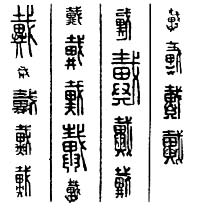 戴戴戴戴
戴戴戴戴
戴戴戴戴戴
戴戴戴戴